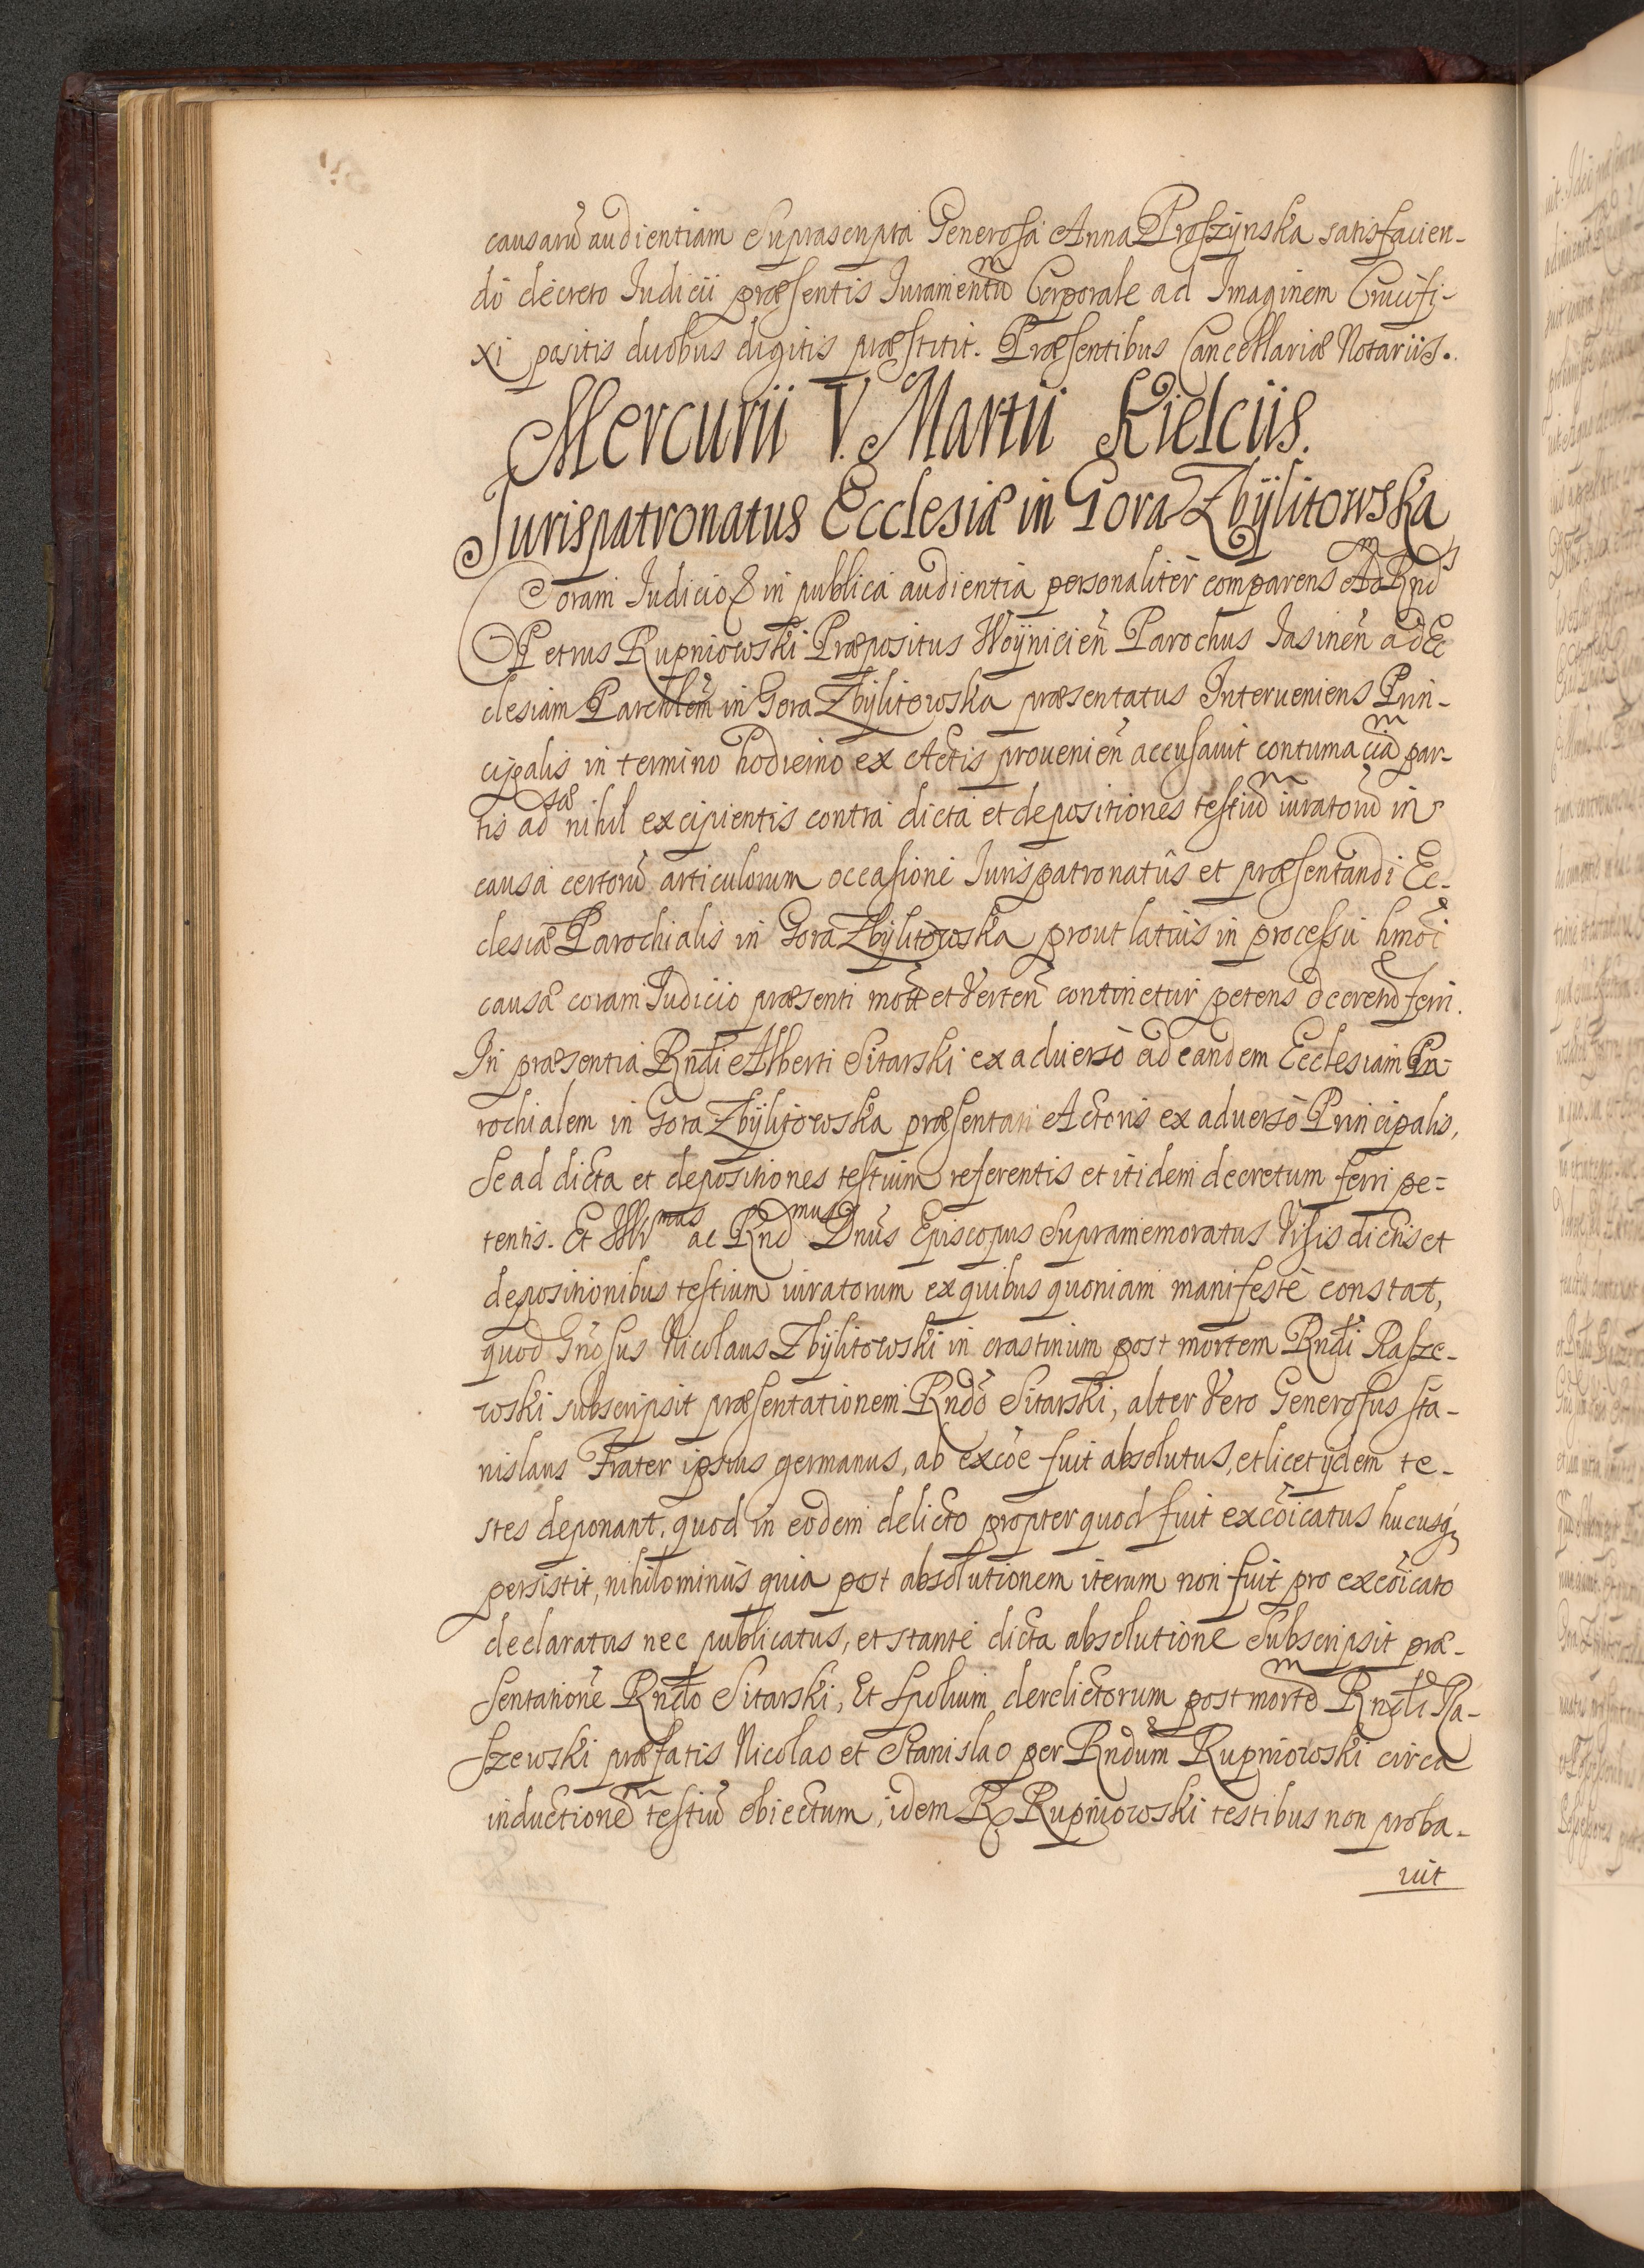 causarū audientiam Suprascripta Generosa Anna Proszÿnska satisfacien-
do decreto Iudicii præsentis Iuramentū Corporale ad Imaginem Crucifi-
xi positis duobus digitis præstitit. Præsentibus Cancellariæ Notariis.
Mercurii V. Martii Kielciis.
Jurispatronatus Ecclesiæ in Gora Zbÿlitowska
Coram Iudicio & in publica audientia personaliter comparens AdRnds
Petrus Rupniowski Præpositus Woÿnicień Parochus Iasineń ad Ec
clesiam Parchlem̃ in Gora Zbÿlitowska præsentatus Interueniens Prin-
cipalis in termino hodierno ex Actis prouenień accusauit contumaciā par-
tis adsæ nihil excipientis contra dicta et depositiones testiū iuratorū in
causa certorū articulorum occasione Iurispatronatûs et præsentandi Ec-
clesiæ Parochialis in Gora Zbÿlitowska prout latiùs in processu hmōi
causæ coram Iudicio præsenti mott et Verteñ continetur petens decretū ferri.
In præsentia Rndi Alberti Sitarski ex aduerso ad eandem Ecclesiam Pa-
rochialem in Gora Zbÿlitowska præsentati Actoris ex aduerso Principalis,
Se ad dicta et depositiones testium referentis et itidem decretum ferri pe-
tentis. Et Illrmus ac Rndmus Dnūs Episcopus Supramemoratus Visis dictis et
depositionibus testium iuratorum ex quibus quoniam manifestè constat,
quod Gnōsus Nicolaus Zbÿlitowski in crastinum post mortem Rndi Rasze-
wski subscripsit præsentationem Rndō Sitarski, alter Vero Generosus Sta-
nislaus Frater ipsius germanus, ab excōe fuit absolutus, et licet ijdem te-
stes deponant, quod in eodem delicto propter quod fuit excōicatus hucusq;
persistit, nihilominùs quia post absolutionem iterum non fuit pro excōicato
declaratus nec publicatus, et stante dicta absolutione Subscripsit præ-
sentationē Rndo Sitarski, Et Spolium derelictorum post mortē Rndi Ra-
szewski præfatis Nicolao et Stanislao per Rndum Rupniowski circa
inductionē testiū obiectum, idem R. Rupniowski testibus non proba-
uit